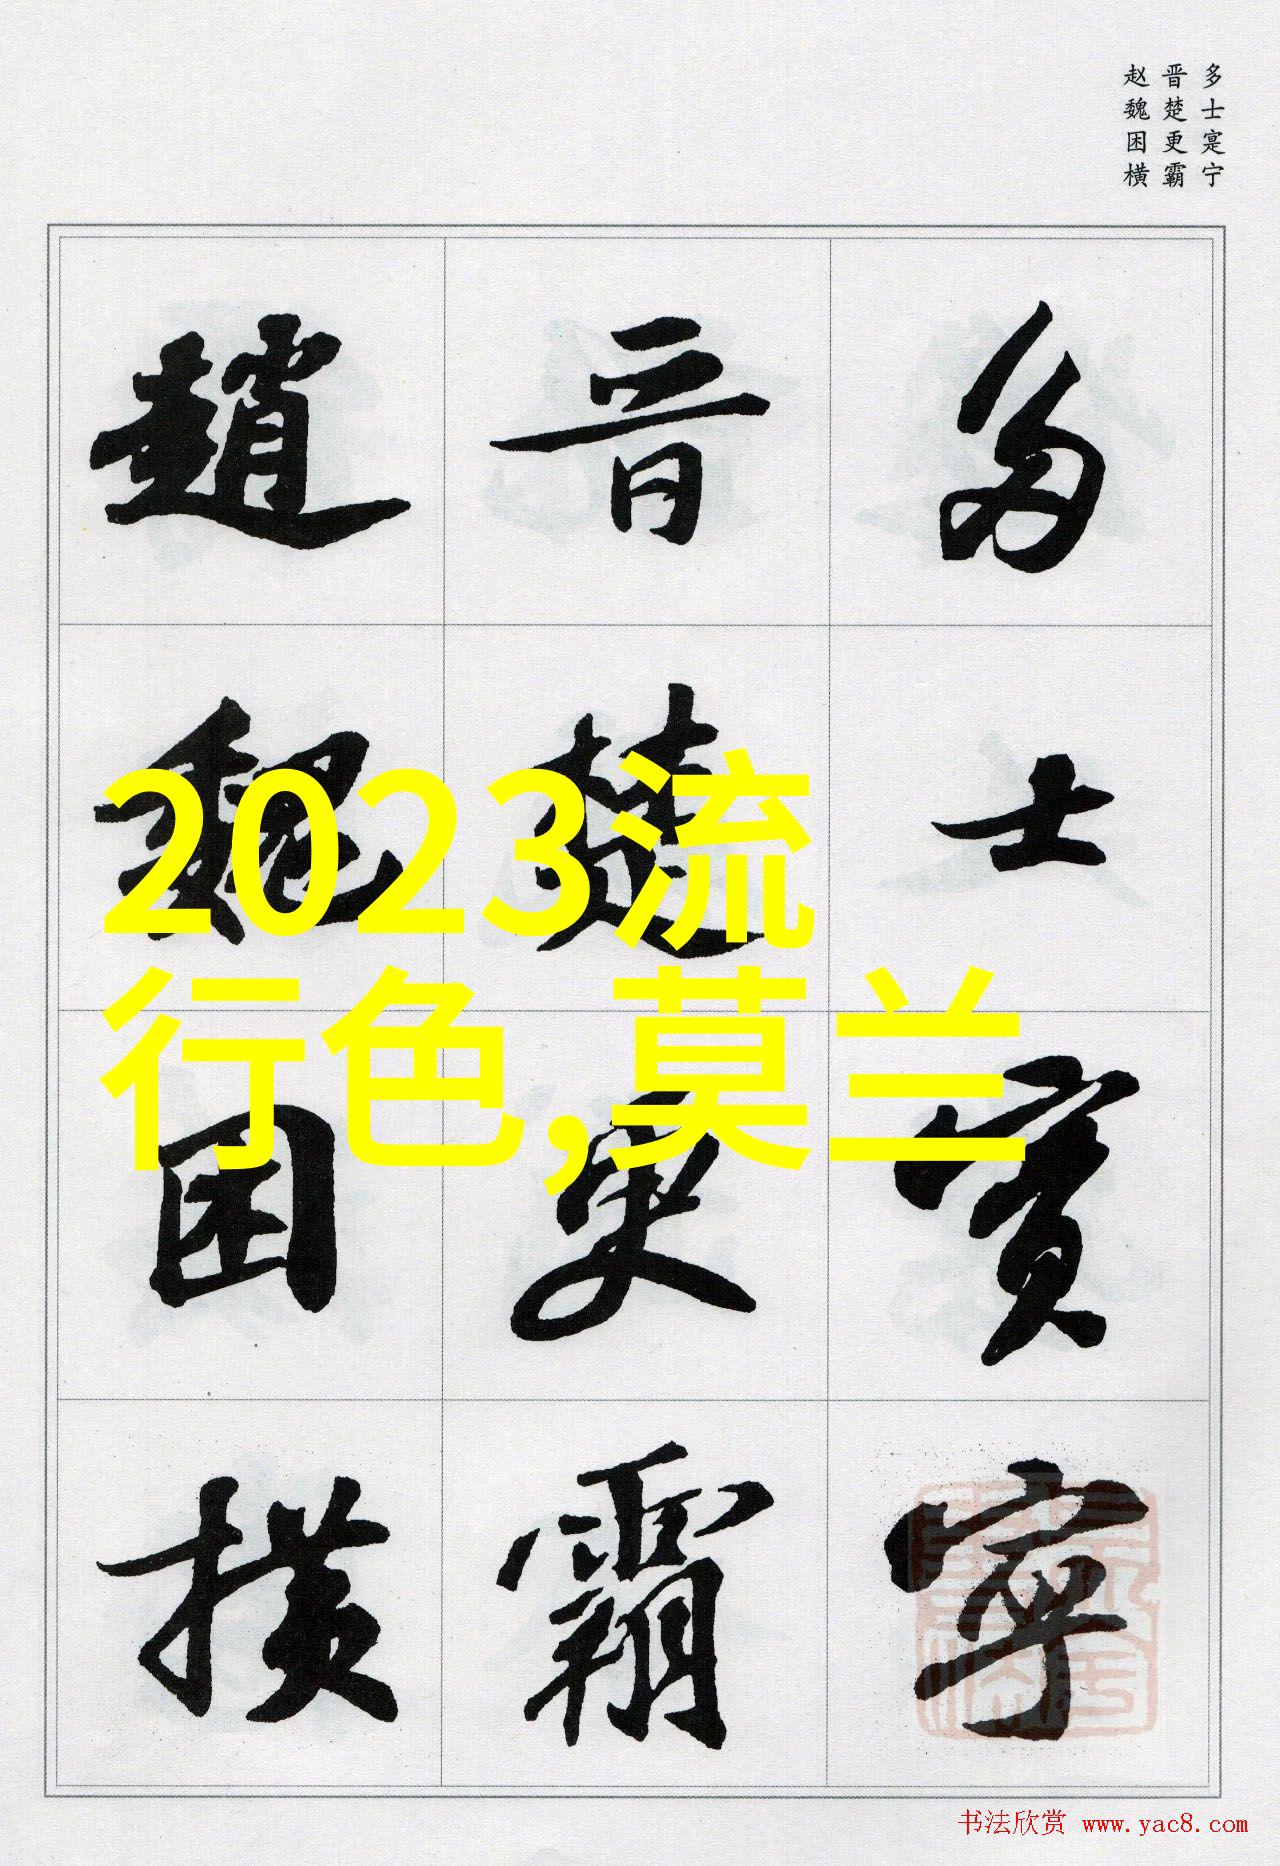 多士寔宁
晋楚更霸
赵魏困横
多士寔寧
晋楚更霸
趙魏困横
2023流
行色,莫兰
书法欣赏 www.yac8.com